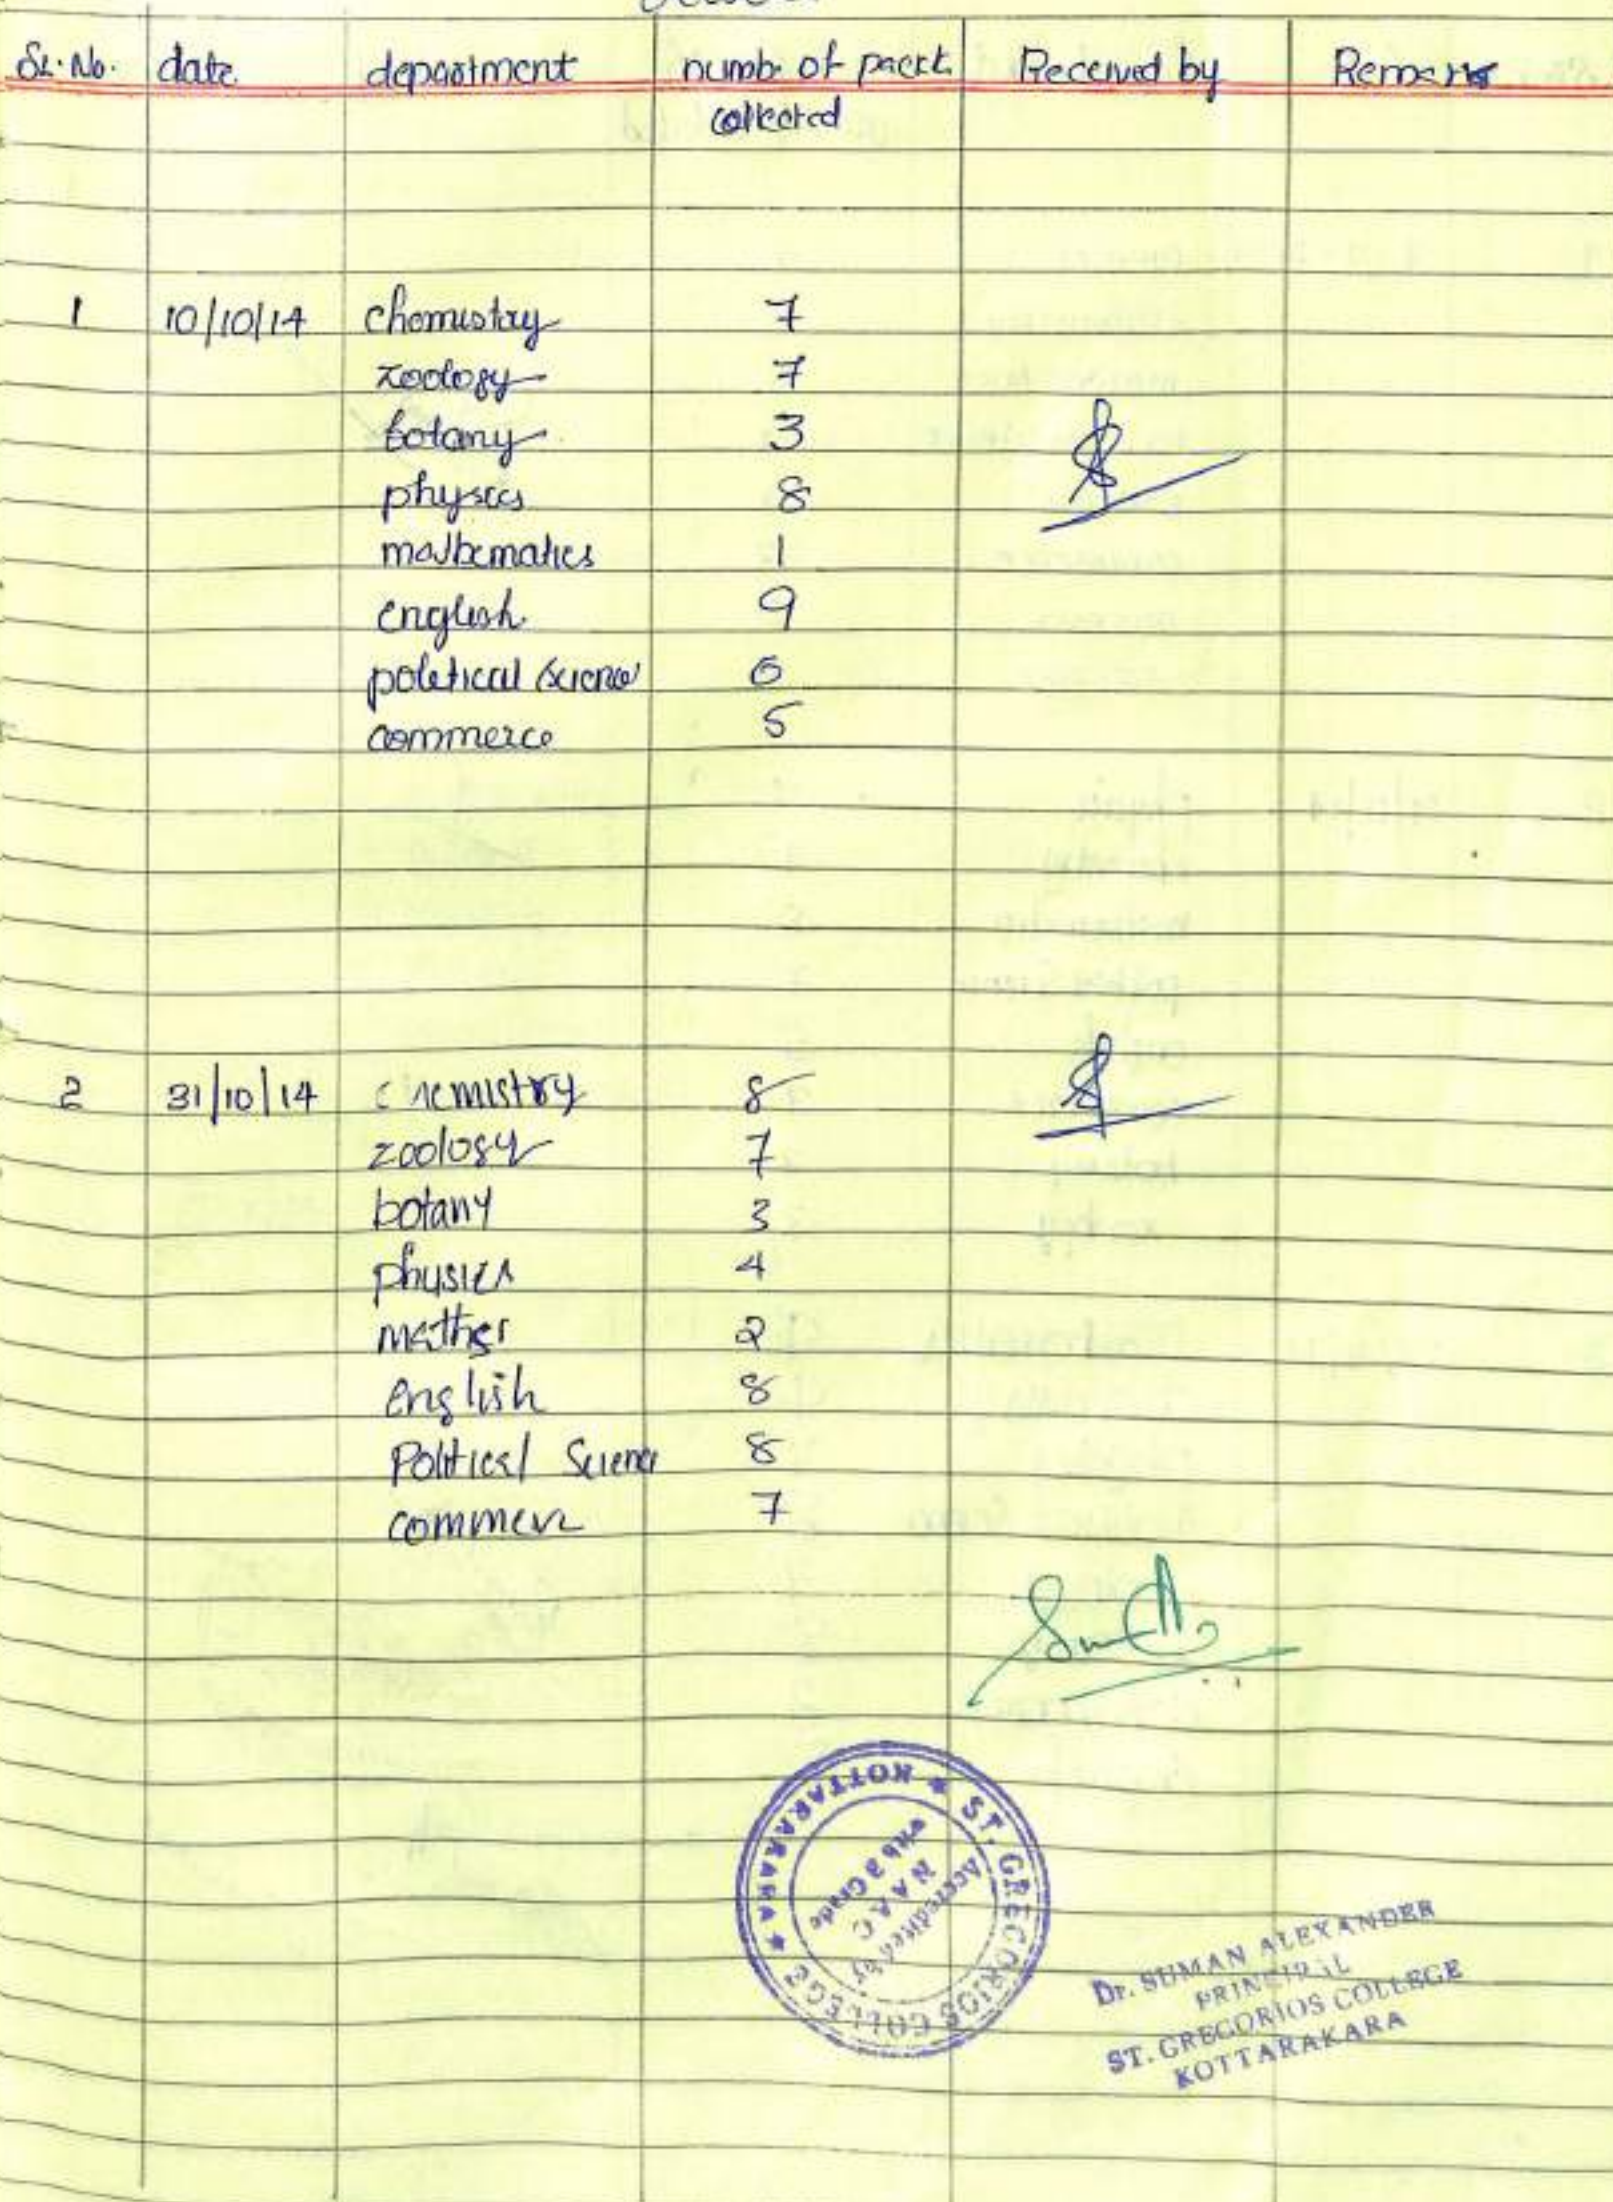 Sl. No. date department numb of packt Received by Remarks
collected
1 10/10/14 chemistry 7
zoology 7
botany 3
physics 8
mathematics 1
english 9
political science 6
commerce 5
2 31/10/14 chemistry 8
zoology 7
botany 3
physics 4
2
english 8
Political Science 8
commerce 7
ST. GREGORIOS COLLEGE * KOTTARAKARA *
Accredited by
N A A C
with B Grade
Dr. SUMAN ALEXANDER
PRINCIPAL
ST. GREGORIOS COLLEGE
KOTTARAKARA